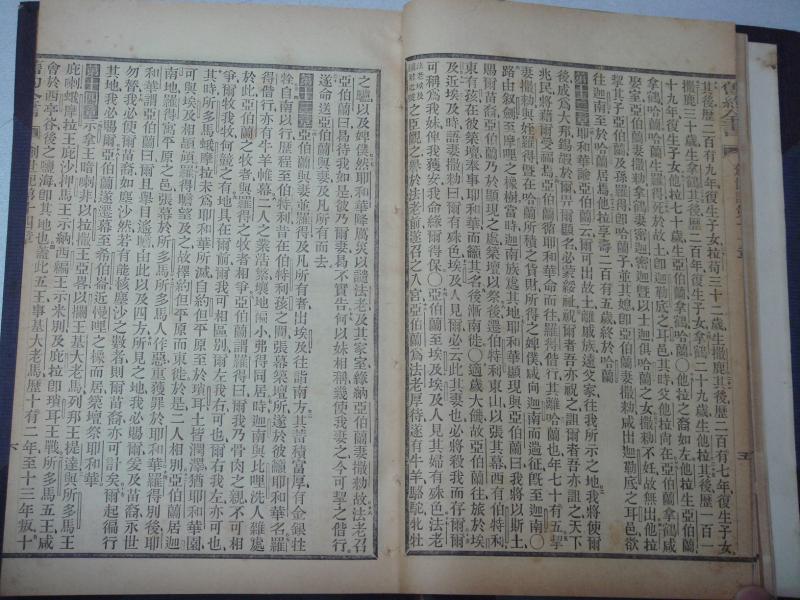 其後歷二百有九年復生子女拉荀三十二歲生撒鹿其後歷二百有七年復生子女
撒鹿三十歲生拿鶴其後歷二百年復生子女拿鶴二十九歲生他拉其後歷一百一
十九年復生子女他拉七十歲生亞伯蘭拿鶴哈蘭〇他拉之裔如左他拉生亞伯蘭
拿鶴哈蘭哈蘭生羅得死於故土卽迦勒底之耳邑其時父他拉尚在亞伯蘭拿鶴咸
娶室亞伯蘭妻撒勑拿鶴妻密迦密迦曁以士迦俱哈蘭之女撒勑不妊故無出他拉
挈其子亞伯蘭及孫羅得卽哈蘭子並其媳卽亞伯蘭妻撒勑咸出迦勒底之耳邑欲
往迦南至於哈蘭居焉他拉享壽二百有五歲終於哈蘭
第十二章耶和華諭亞伯蘭云爾可出故土離戚族遠父家往我所示之地我將使爾
後成爲大邦錫嘏於爾畀爾顯名必蒙綏祉祝爾者吾亦祝之詛爾者吾亦詛之天下
兆民將藉爾受福焉亞伯蘭遵耶和華命而往羅得偕行其離哈蘭也年七十有五挈
妻撒勑與姪羅得曁在哈蘭所積之貨財所得之婢僕咸向迦南而遄征旣至迦南〇
路由叙劍至摩哩之橡樹當時迦南族處其地耶和華顯現與亞伯蘭曰我將以斯土
賜爾苗裔亞伯蘭乃於顯現之處築壇以祭後遷伯特利東山以張其幕西有伯特利
東有亥在彼築壇奉事耶和華而籲其名後漸南徙〇適歲大饑故亞伯蘭往旅於埃
及近埃及時語妻撒勑曰爾有殊色埃及人見爾必云此其妻也必將殺我而存爾爾
可稱爲我妹俾我獲安我命緣爾得保〇亞伯蘭至埃及埃及人見其婦有殊色法老
之臣覩之譽於法老前遂召之入宮亞伯蘭爲法老厚待遂有牛羊駱駝牝牡
之驢以及婢僕然耶和華降厲災以譴法老及其家室緣納亞伯蘭妻撒勑故法老召
亞伯蘭曰曷待我如是彼乃爾妻曷不實告何以妹相稱幾使我妻之今可挈之偕行
遂命送亞伯蘭與妻及凡所有而去
第十三章亞伯蘭與妻並羅得及凡所有者出埃及往詣南方其蓄積富厚有金銀牲
牷自南以行歷程至伯特利昔在伯特利亥之間張幕築壇所遂於彼籲耶和華名羅
得偕行亦有牛羊帷幕二人之業浩繁壤地褊小弗得同居時迦南與比哩洗人雜處
其地亞伯蘭之牧者與羅得之牧者相爭亞伯蘭謂羅得曰爾我乃骨肉之親不可相
爭爾牧我牧何競之有地具在爾前爾我可相區別爾左我右可也爾右我左亦可也
其時所多馬蛾摩拉未爲耶和華所滅自約但平原至於瑣耳土皆潤澤猶耶和華園
可與埃及相頡頏羅得瞻望及之故擇約但平原而東徙於是二人相別亞伯蘭居迦
南地羅得寓平原之邑張幕於所多馬所多馬人作惡重獲罪於耶和華羅得別後耶
和華謂亞伯蘭曰爾且舉目遙瞻由此以及四方所見之地我必賜爾爰及苗裔永世
勿替我必使爾苗裔如塵沙然若有能核塵沙之數者則爾苗裔亦可計矣爾起徧行
其地我必賜爾亞伯蘭遂遷幕至希伯崙近幔哩之橡而居築壇祭耶和華
第十四章示拿王暗喇非以拉撒王亞畧以攔王基大老馬列邦王提達與所多馬王
庇喇蛾摩拉王庇沙押馬王示納西編王示米別及庇拉卽瑣耳王戰所多馬五王咸
會於西亭谷後之鹽海卽其地也蓋此五王事基大老馬歷十有二年至十三年叛十
創世記第十四章
五
六